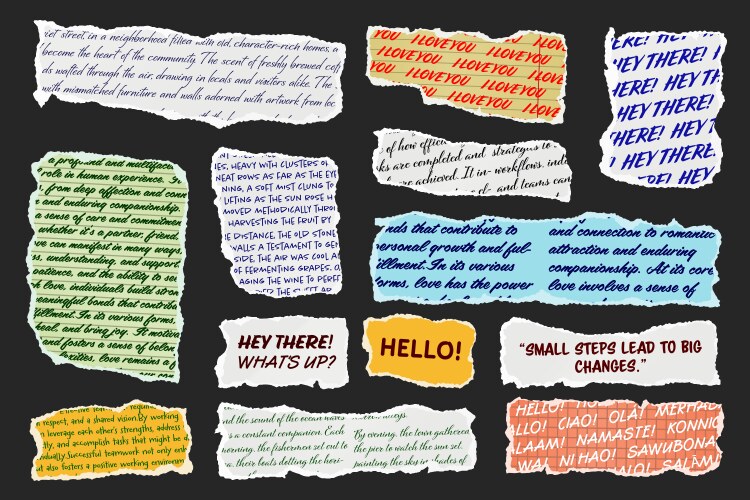 iet street in a neighborhood filled with old, character-rich homes, a
become the heart of the community. The scent of freshly brewed coff
ds wafted through the air, drawing in locals and visitors alike. The
with mismatched furniture and walls adorned with artwork from loc
YOU I LOVE YOU I LOVE
I LOVE YOU I LOVE YOU
YOU I LOVE YOU I LOVE
I LOVE YOU I LOVE YOU
YOU I LOVE YOU I LOVE
I LOVE YOU I LOVE
ERE! HEY
HEY THERE!
HERE! HEY TH
HEY THERE!
THERE! HEY T
HEY THERE!
THERE! HEY
of how effici
ks are completed and strategies to
are achieved. It in- workflows, ind
and teams can
a profound and multiface
role in human experience. In
s, from deep affection and conn
and enduring companionship.
a sense of care and commitmen
whether it's a partner, friend
ve can manifest in many ways,
s, understanding, and support.
patience, and the ability to see
h love, individuals build stro
meaningful bonds that contribu
fillment. In its various forms,
heal, and bring joy. It motiva
and fosters a sense of belon
love remains a f
ES, HEAVY WITH CLUSTERS OF
NEAT ROWS AS FAR AS THE EYE
NING, A SOFT MIST CLUNG TO
LIFTING AS THE SUN ROSE H
MOVED METHODICALLY THROU
HARVESTING THE FRUIT BY
E DISTANCE, THE OLD STONE
WALLS A TESTAMENT TO GEN
SIDE, THE AIR WAS COOL A
OF FERMENTING GRAPES, O
AGING THE WINE TO PERFE
OVER THE SWEET AR
nds that contribute to
ersonal growth and ful-
illment. In its various
forms, love has the power
and connection to romantic
attraction and enduring
companionship. At its core
love involves a sense of
HEY THERE!
WHAT'S UP?
HELLO!
“SMALL STEPS LEAD TO BIG
CHANGES.”
respect, and a shared vision. By working
n leverage each other's strengths, address
tly, and accomplish tasks that might be d
dually. Successful teamwork not only en
ut also fosters a positive working environm
nd the sound of the ocean waves
a constant companion. Each
morning, the fishermen set out to
a, their boats dotting the hori-
By evening, the town gathered
the pier to watch the sun set,
painting the sky in shades of
HELLO! HOLA! MERHAB
ALLO! CIAO! OLÁ!
LAAM! NAMASTE! KONNIC
WA! NI HAO! SAWUBONA
ALO! SALAM